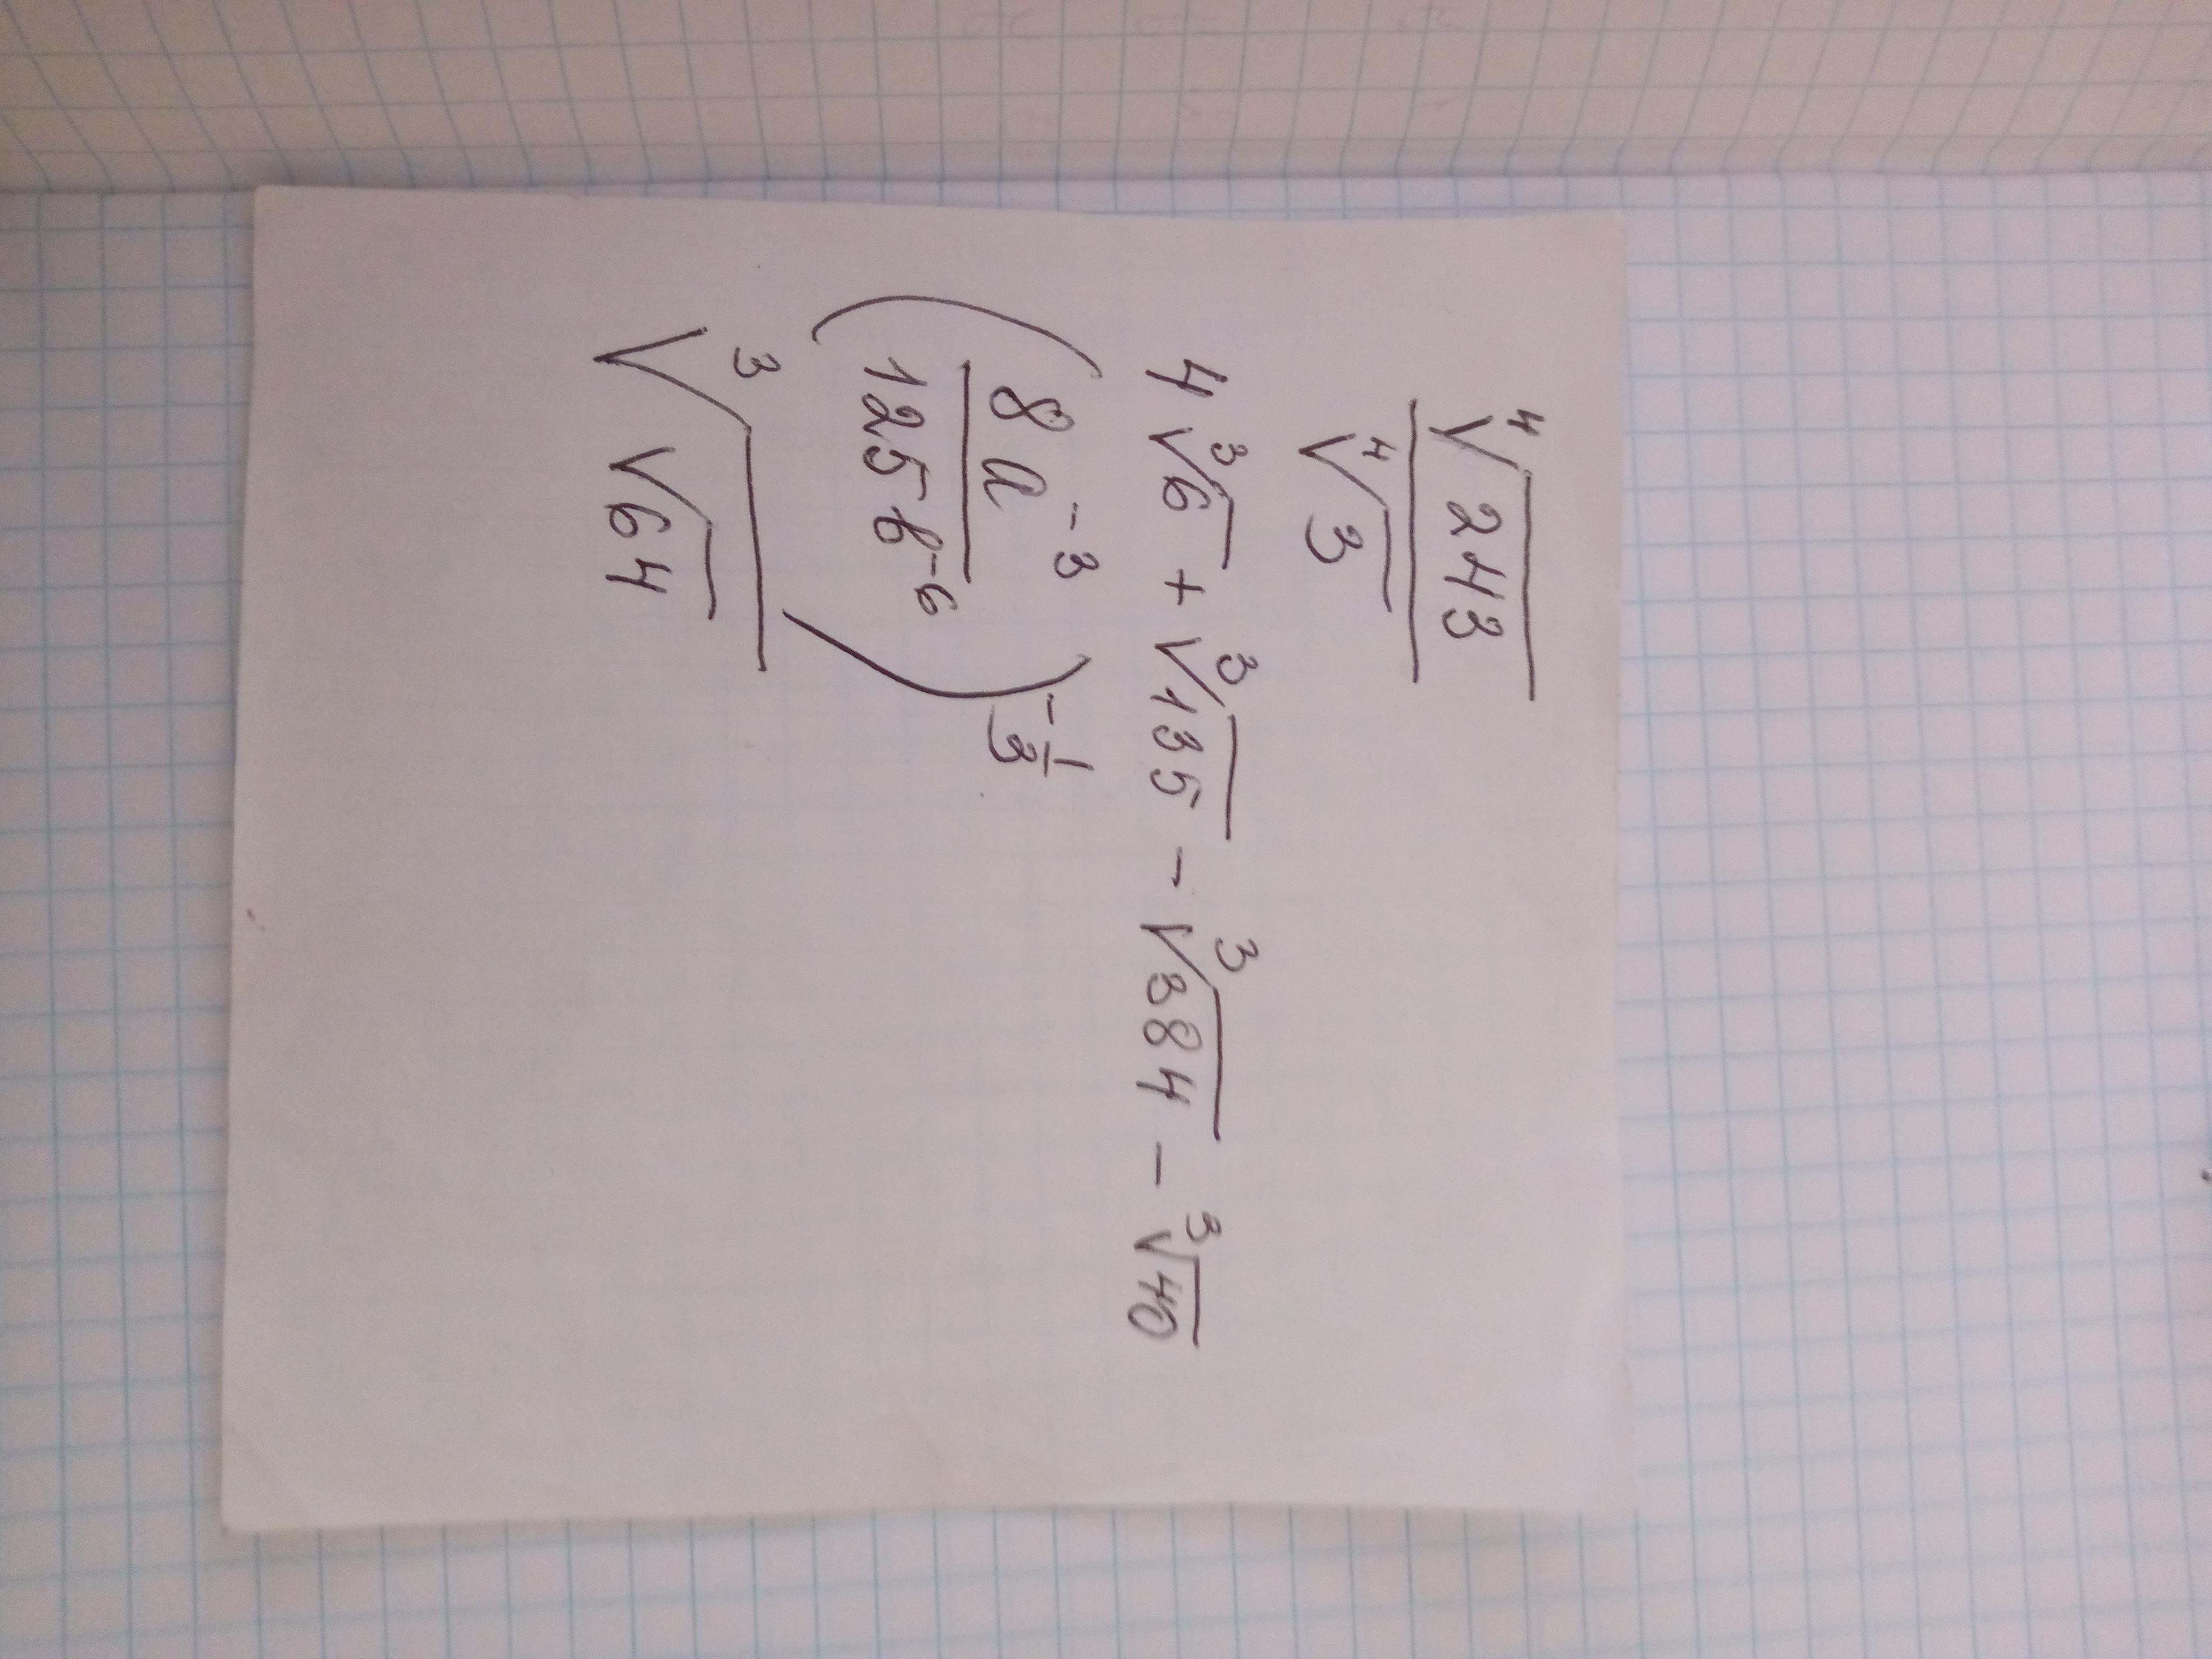 ⁴√243
⁴√3
4 ³√6 + ³√135 - ³√384 - ³√40
(8a⁻³
125b⁻⁶)^(-1/3)
³√√64